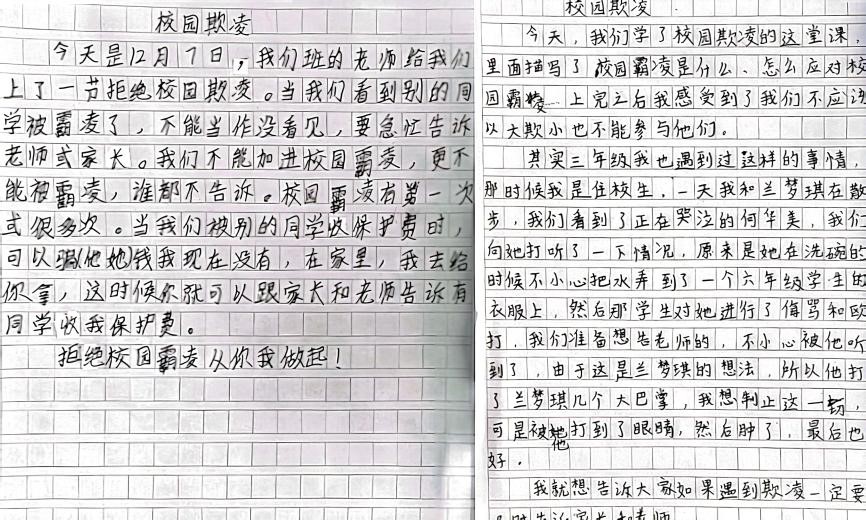 校园欺凌
今天是12月7日，我们班的老师给我们
上了一节拒绝校园欺凌。当我们看到别的同
学被霸凌了，不能当作没看见，要急忙告诉
老师或家长。我们不能加进校园霸凌，更不
能被霸凌，谁都不告诉。校园霸凌有第一次
或很多次。当我们被别的同学收保护费时，
可以骗(他她)钱我现在没有，在家里，我去给
你拿，这时候你就可以跟家长和老师告诉有
同学收我保护费。
拒绝校园霸凌从你我做起！
校园欺凌
今天，我们学了校园欺凌的这堂课，
里面描写了校园霸凌是什么、怎么应对校
园霸凌 上完之后我感受到了我们不应该
以大欺小也不能参与他们。
其实三年级我也遇到过这样的事情，
那时候我是住校生，一天我和兰梦琪在散
步，我们看到了正在哭泣的何华美，我们
向她打听了一下情况，原来是她在洗碗的
时候不小心把水弄到了一个六年级学生的
衣服上，然后那学生对她进行了侮骂和欧
打，我们准备想告老师的，不小心被他听
到了，由于这是兰梦琪的想法，所以他打
了兰梦琪几个大巴掌，我想制止这一切，
可是被他打到了眼睛，然后肿了，最后也
好。
我就想告诉大家如果遇到欺凌一定要
时告诉家长和老师